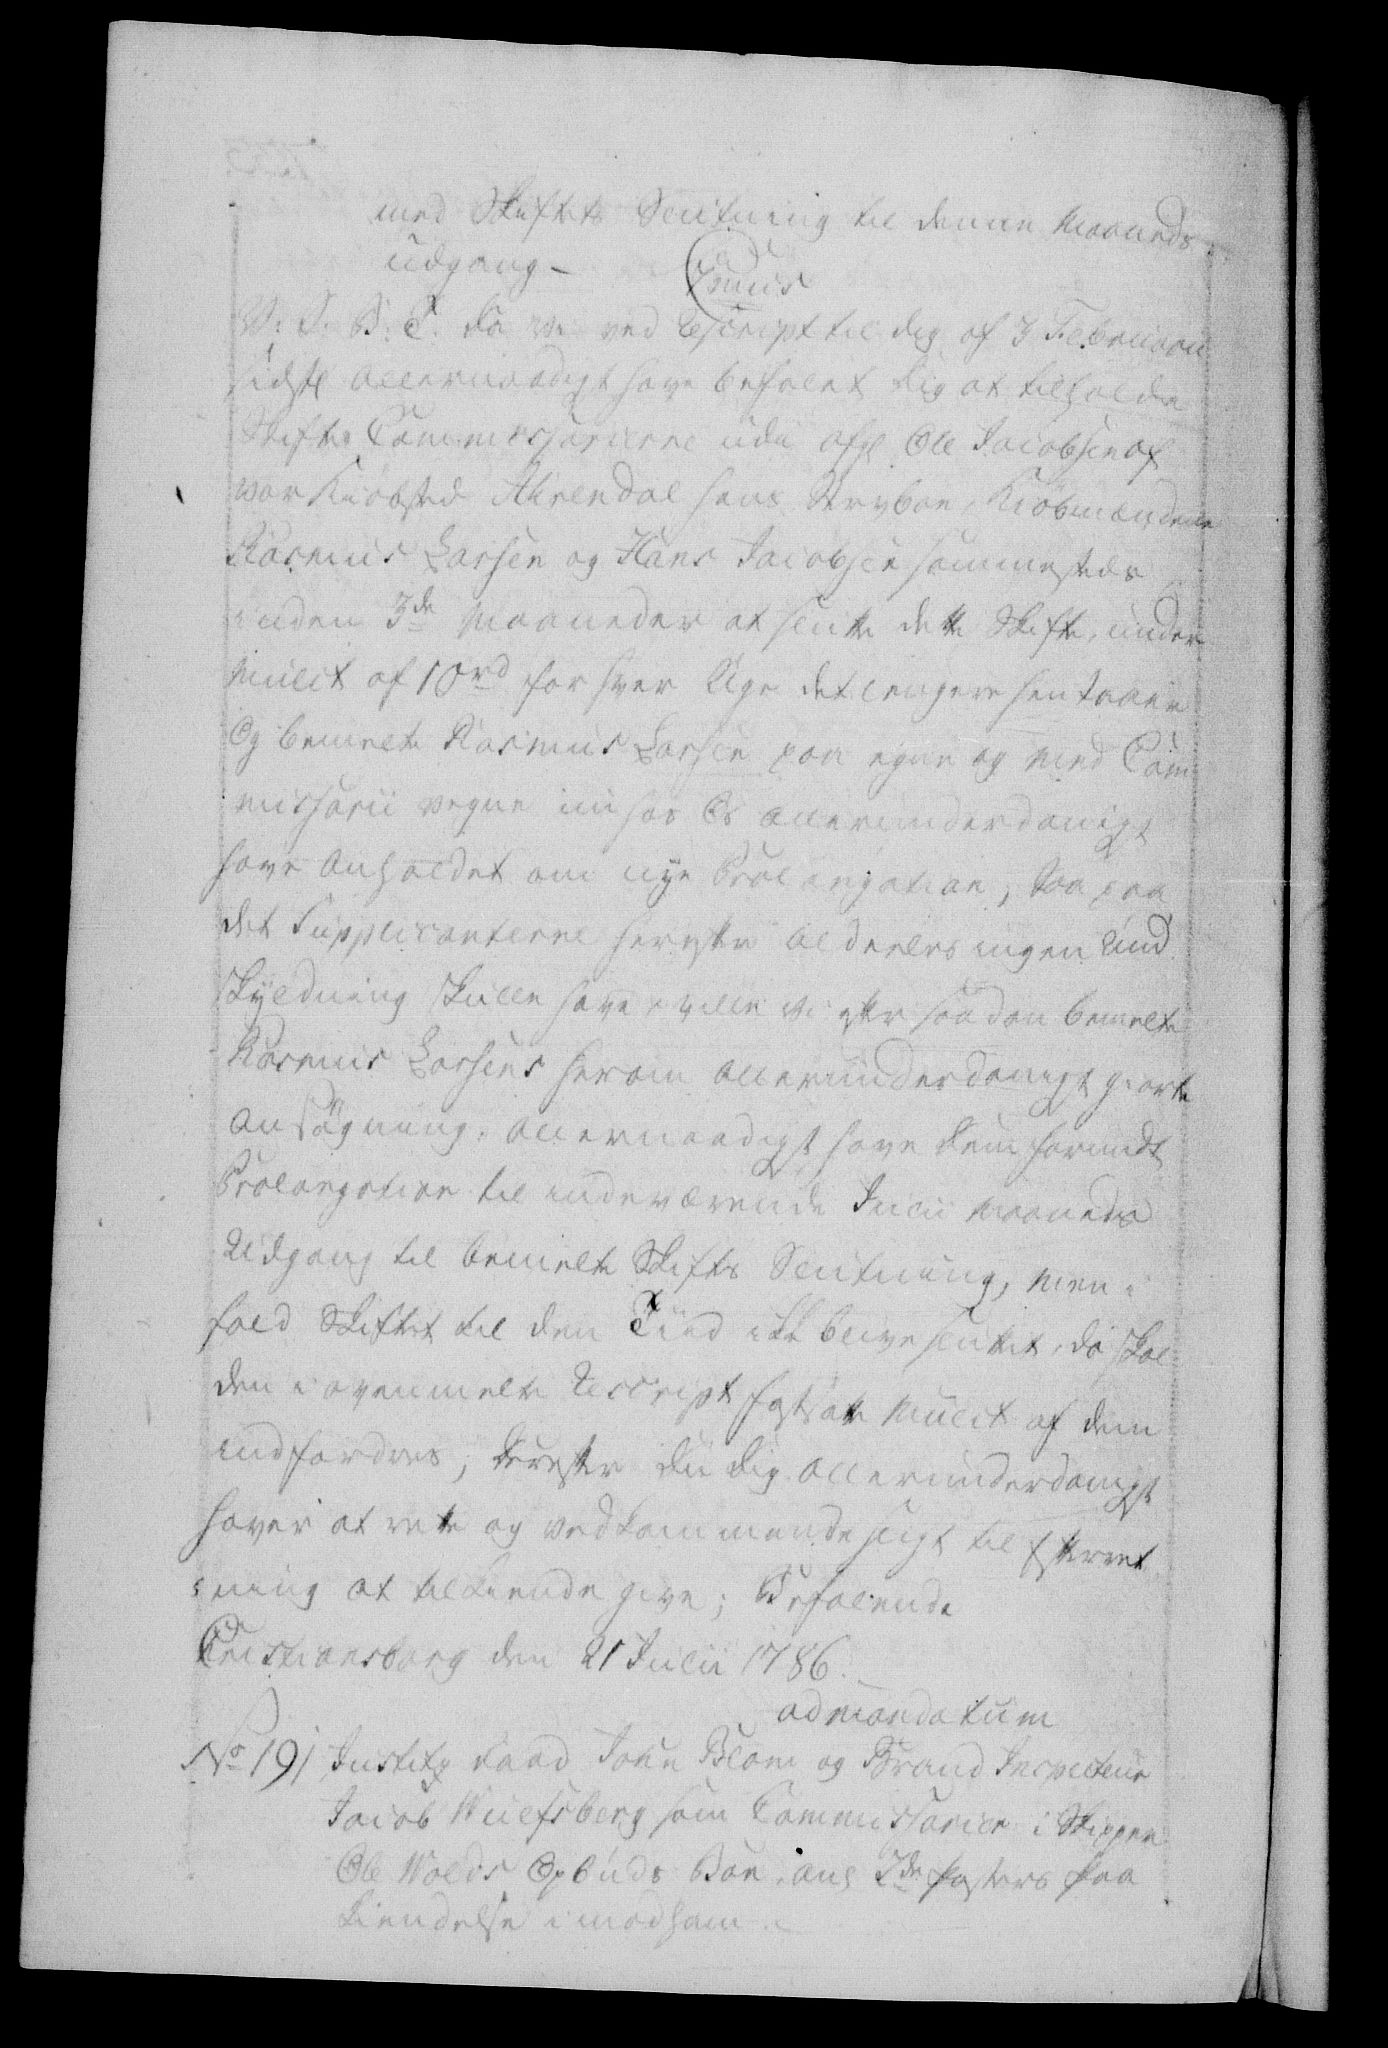 med Skiftets Slutning til denne Maaneds
udgang –
V: S: B: T: da vi ved Rescript til dig af 3 Februarii
sidstl allernaadigst have befalet dig at tilholde
Skifte Commissarierne udi afg: Ole Jacobsen af
vor Kiøbsted Ahrendal hans Stervboe, Kiøbmændene
Rasmus Larsen og Hans Jacobsen sammesteds
inden 3de Maaneder at slutte dette Skifte, under
Mulct af 10rd for hver Uge det lengere henstaaer
Og bemelte Rasmus Larsen paa egne og Med Com
missarii vegne nu hos Os allerunderdanigst
have Anholdet om nye Prolongation, saa paa
det Supplicanterne herefter aldeeles ingen Und
skyldning skulle have, ville vi efter saadan bemelte
Rasmus Larsens herom allerunderdanigst giorte
Ansøgning, allernaadigst have dem forundt
Prolongation til indeværende Julii Maaneds
Udgang til bemelte Skiftes Slutning, men i
fald Skiftet til den Tiid ikke blive sluttet, da skal
den i ovenmelte Rescript fastsatte Mulct af dem
indfordres, Derefter du dig allerunderdanigst
haver at rette og vedkommende sligt til Efterret
ning at tilkiende give; Befalende
Cristiansborg den 21 Julii 1786.
ad mandatum
No 191 Justitz Raad John Blom og Brand Inspecteur
Jacob Wulfsberg som Commissarier i Skipper
Ole Wolds Opbuds Boe, ang 2de Posters paa
kiendelse imodham